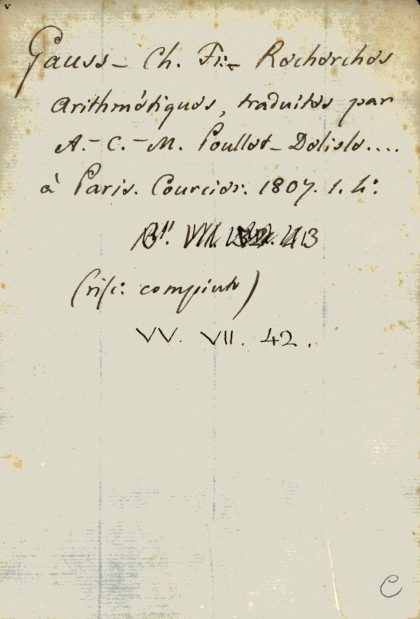 Gauss - Ch. Fr. - Recherches
Arithmétiques, traduites par
A.-C.-M. Poullet-Delisle....
à Paris. Courcier. 1807. 1. 4.º
VII. 43
VV. VII. 42.
C